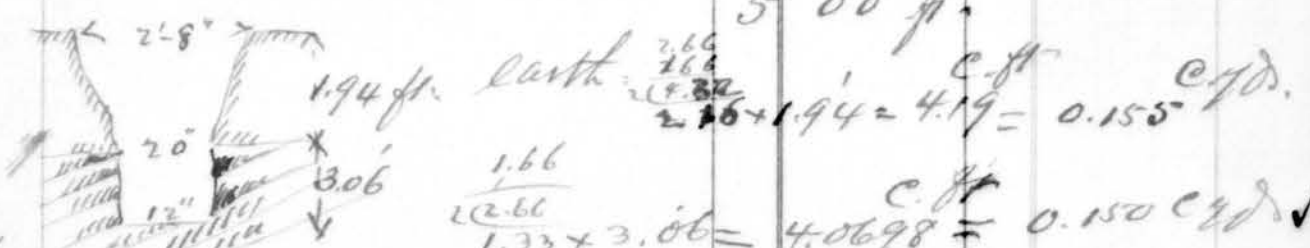 5 00 ft.
2'-8"
1.94 ft. earth
2.66
1.66
2(4.32
2.16 × 1.94 = 4.19 c. ft = 0.155 c. yds.
20"
3.06
12"
1.66
2(2.66
1.33 × 3.06 = 4.0698 c. ft = 0.150 c yds ✓